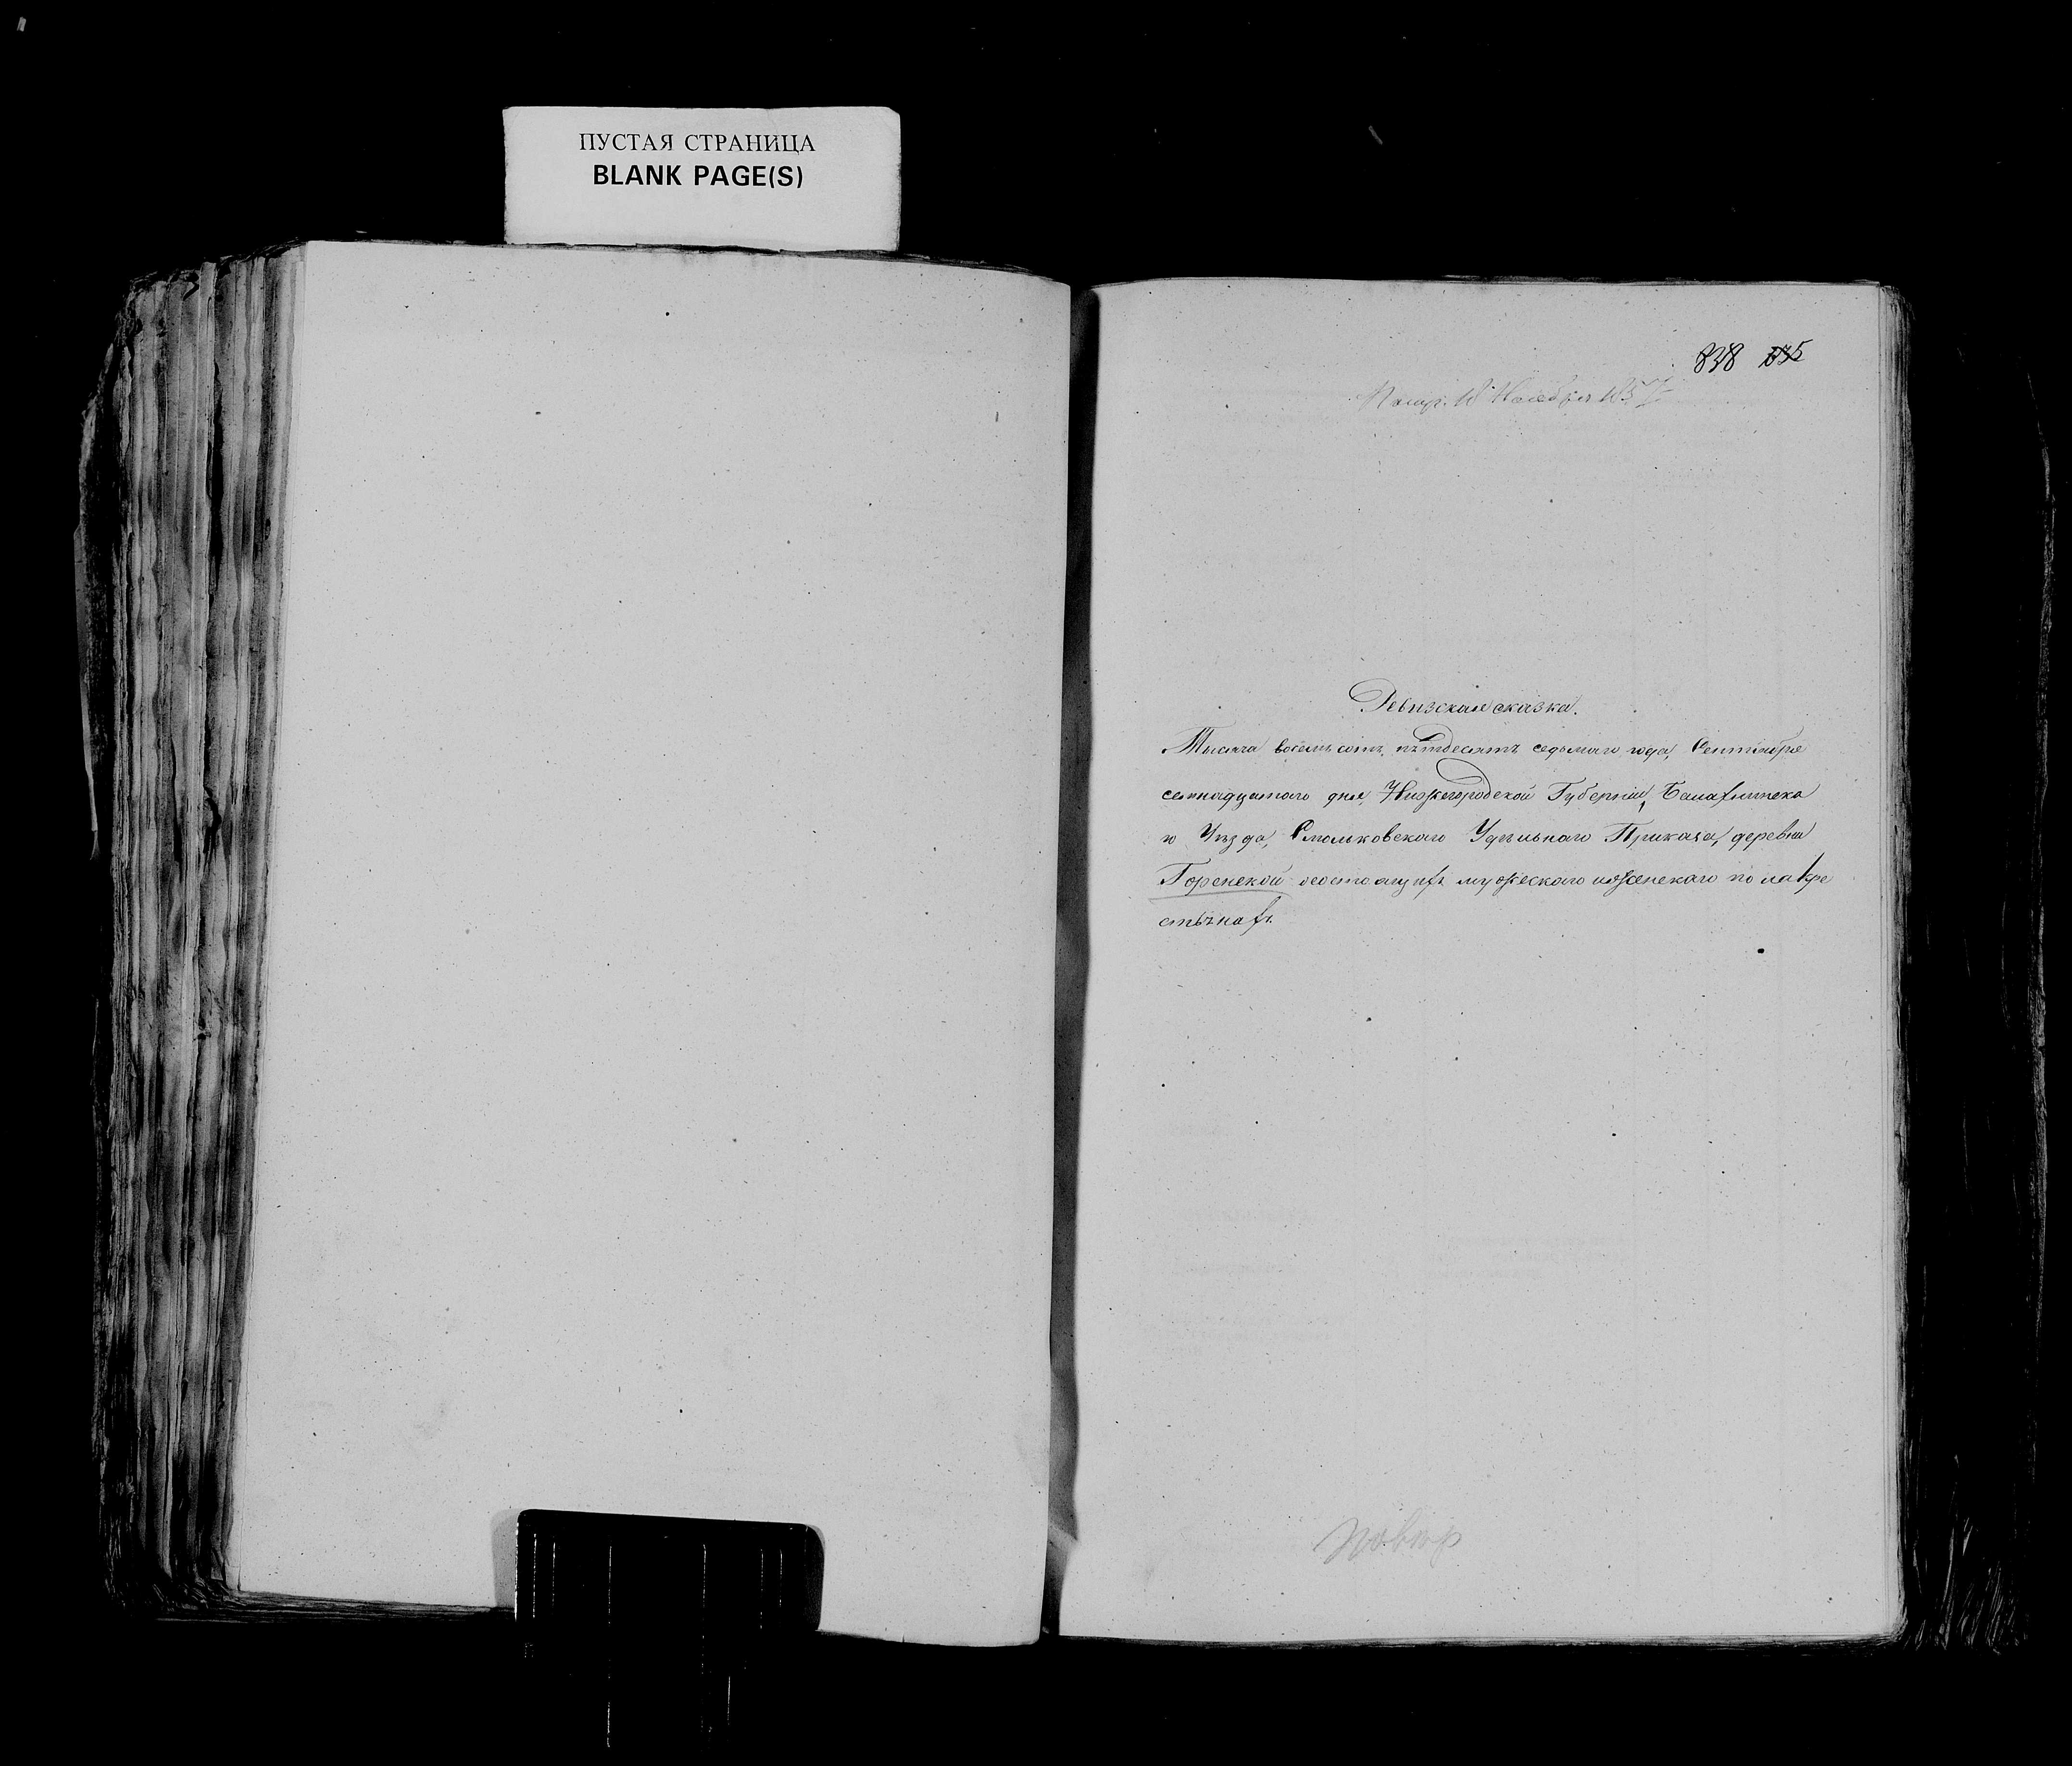 ПУСТАЯ СТРАНИЦА
BLANK PAGE(S)
838
18 Ноября 1857
Ревизская сказка.
Тысяча восемь сотъ пѣтдесятъ седьмаго года, Сентября
семнадцатого дня, Нижегородской Губерніи, Балахнинска
го Уѣзда, Смольковскаго Удѣльнаго Приказа, деревни
Горенской о состоящихъ мужескаго и женскаго пола кре
стьянахъ.